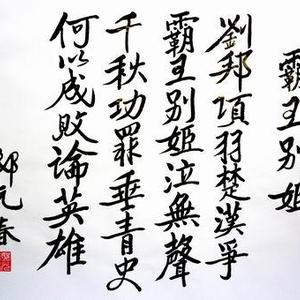 霸王别姬
劉邦項羽楚漢爭
霸王别姬泣無聲
千秋功罪垂青史
何以成敗論英雄
元春